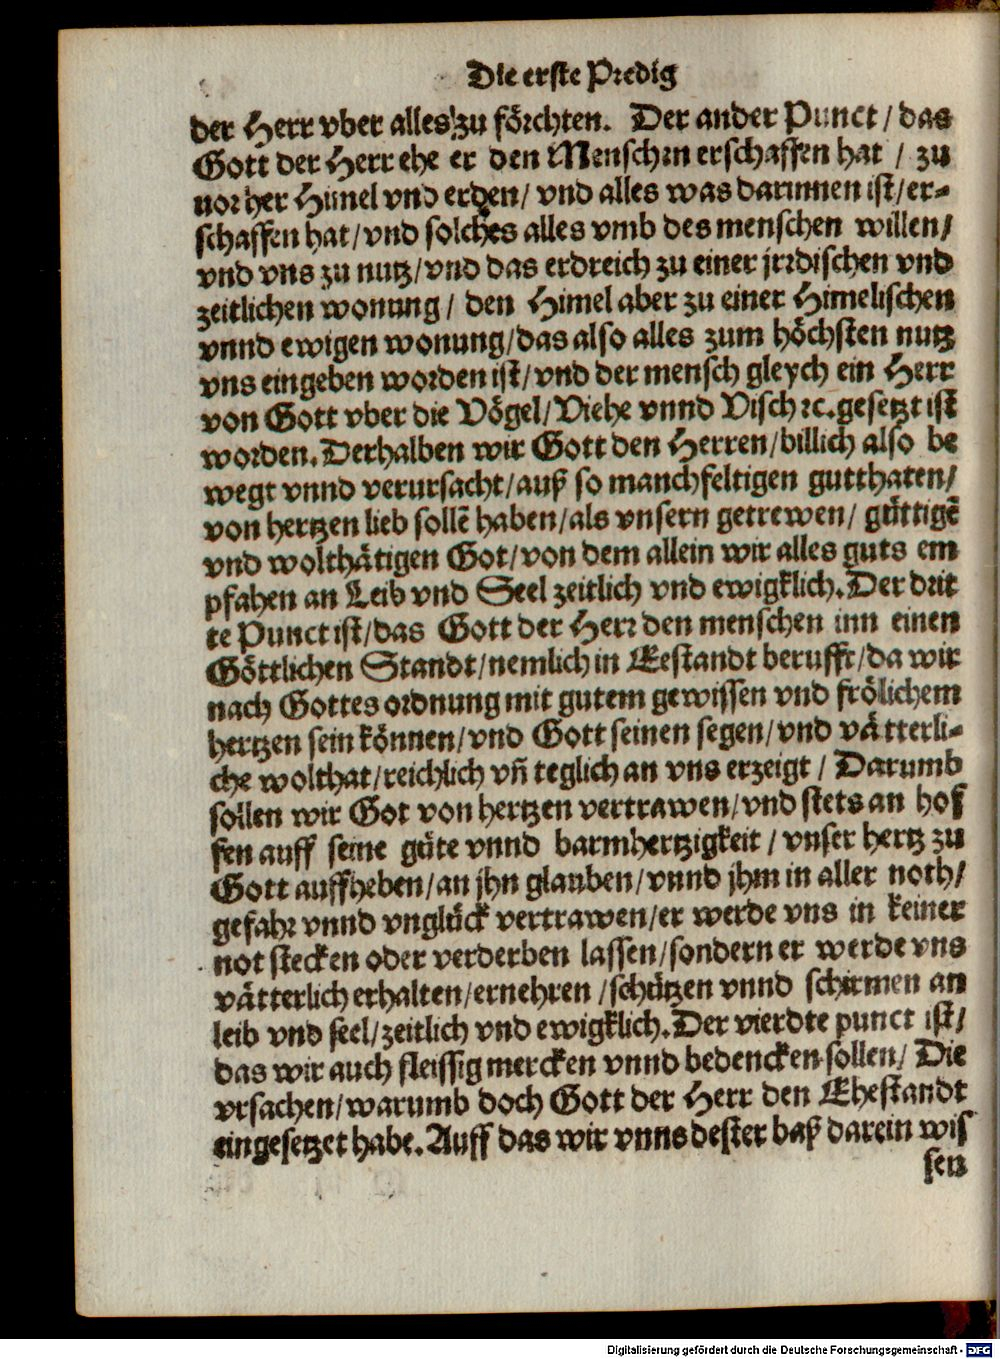 Die erste Predig
der Herr vber alles zu förchten. Der ander Punct / das
Gott der Herr ehe er den Menschen erschaffen hat / zu
uor her Himel vnd erden / vnd alles was darinnen ist / er-
schaffen hat / vnd solches alles vmb des menschen willen /
vnd vns zu nutz / vnd das erdreich zu einer jrrdischen vnd
zeitlichen wonung / den Himel aber zu einer Himelischen
vnnd ewigen wonung / das also alles zum höchsten nutz
vns eingeben worden ist / vnd der mensch gleych ein Herr
von Gott vber die Vögel / Viehe vnnd Visch ꝛc. gesetzt ist
worden. Derhalben wir Gott den Herren / billich also be
wegt vnnd verursacht / auß so manchfeltigen gutthaten /
von hertzen lieb sollē haben / als vnsern getrewen / güttigē
vnd wolthätigen Got / von dem allein wir alles guts em
pfahen an Leib vnd Seel zeitlich vnd ewigklich. Der drit
te Punct ist / das Gott der Herr den menschen inn einen
Göttlichen Standt / nemlich in Eestandt berufft / da wir
nach Gottes ordnung mit gutem gewissen vnd frölichem
hertzen sein können / vnd Gott seinen segen / vnd vätterli-
che wolthat / reichlich vñ teglich an vns erzeigt / Darumb
sollen wir Got von hertzen vertrawen / vnd stets an hof
fen auff seine güte vnnd barmhertzigkeit / vnser hertz zu
Gott auffheben / an jhn glauben / vnnd jhm in aller noth /
gefahr vnnd vnglück vertrawen / er werde vns in keiner
not stecken oder verderben lassen / sondern er werde vns
vätterlich erhalten / ernehren / schützen vnnd schirmen an
leib vnd seel / zeitlich vnd ewigklich. Der vierdte punct ist /
das wir auch fleissig mercken vnnd bedencken sollen / Die
vrsachen / warumb doch Gott der Herr den Ehestandt
eingesetzet habe. Auff das wir vnns dester baß darein wis
sen
Digitalisierung gefördert durch die Deutsche Forschungsgemeinschaft - DFG